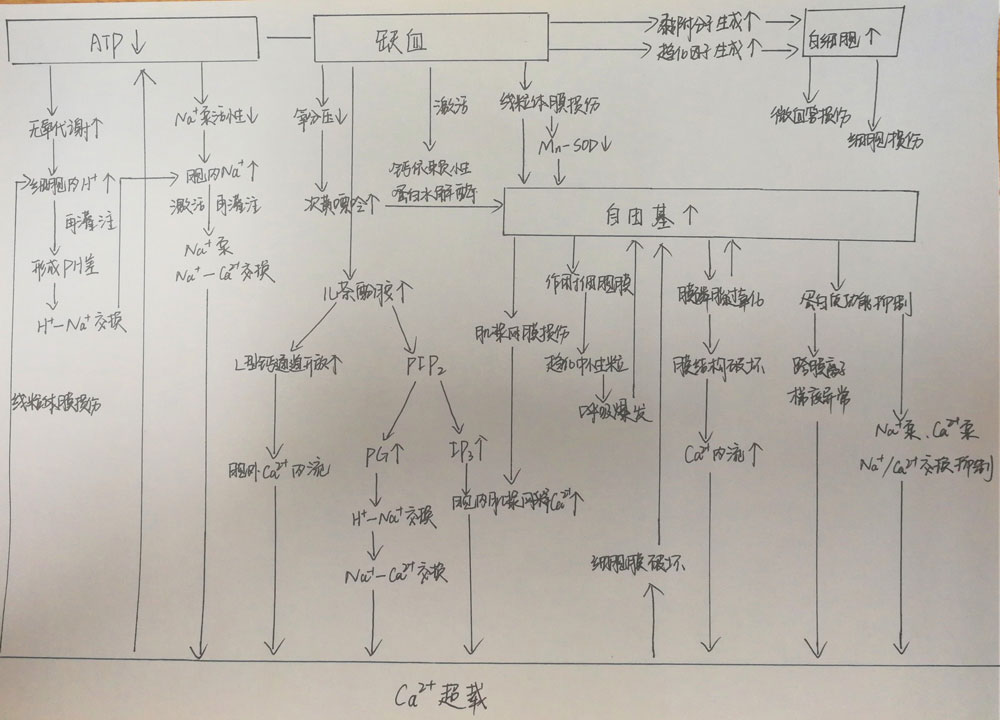 ATP↓
缺血
黏附分子生成↑
趋化因子生成↑
白细胞↑
微血管损伤
细胞损伤
无氧代谢↑
细胞内H⁺↑
再灌注
形成PH差
H⁺-Na⁺交换
线粒体膜损伤
Na⁺泵活性↓
胞内Na⁺↑
激活 再灌注
Na⁺泵
Na⁺-Ca²⁺交换
氧分压↓
次黄嘌呤↑
激活
钙依赖性
蛋白水解酶
线粒体膜损伤
Mn-SOD↓
自由基↑
儿茶酚胺↑
L型钙通道开放↑
胞外Ca²⁺内流
PIP₂
PG↑
H⁺-Na⁺交换
Na⁺-Ca²⁺交换
IP₃↑
胞内肌浆网释Ca²⁺↑
肌浆网膜损伤
作用于细胞膜
趋化中性粒
呼吸爆发
细胞膜破坏
膜脂过氧化
膜结构破坏
Ca²⁺内流↑
蛋白质功能抑制
跨膜离子
梯度异常
Na⁺泵、Ca²⁺泵
Na⁺/Ca²⁺交换抑制
Ca²⁺超载